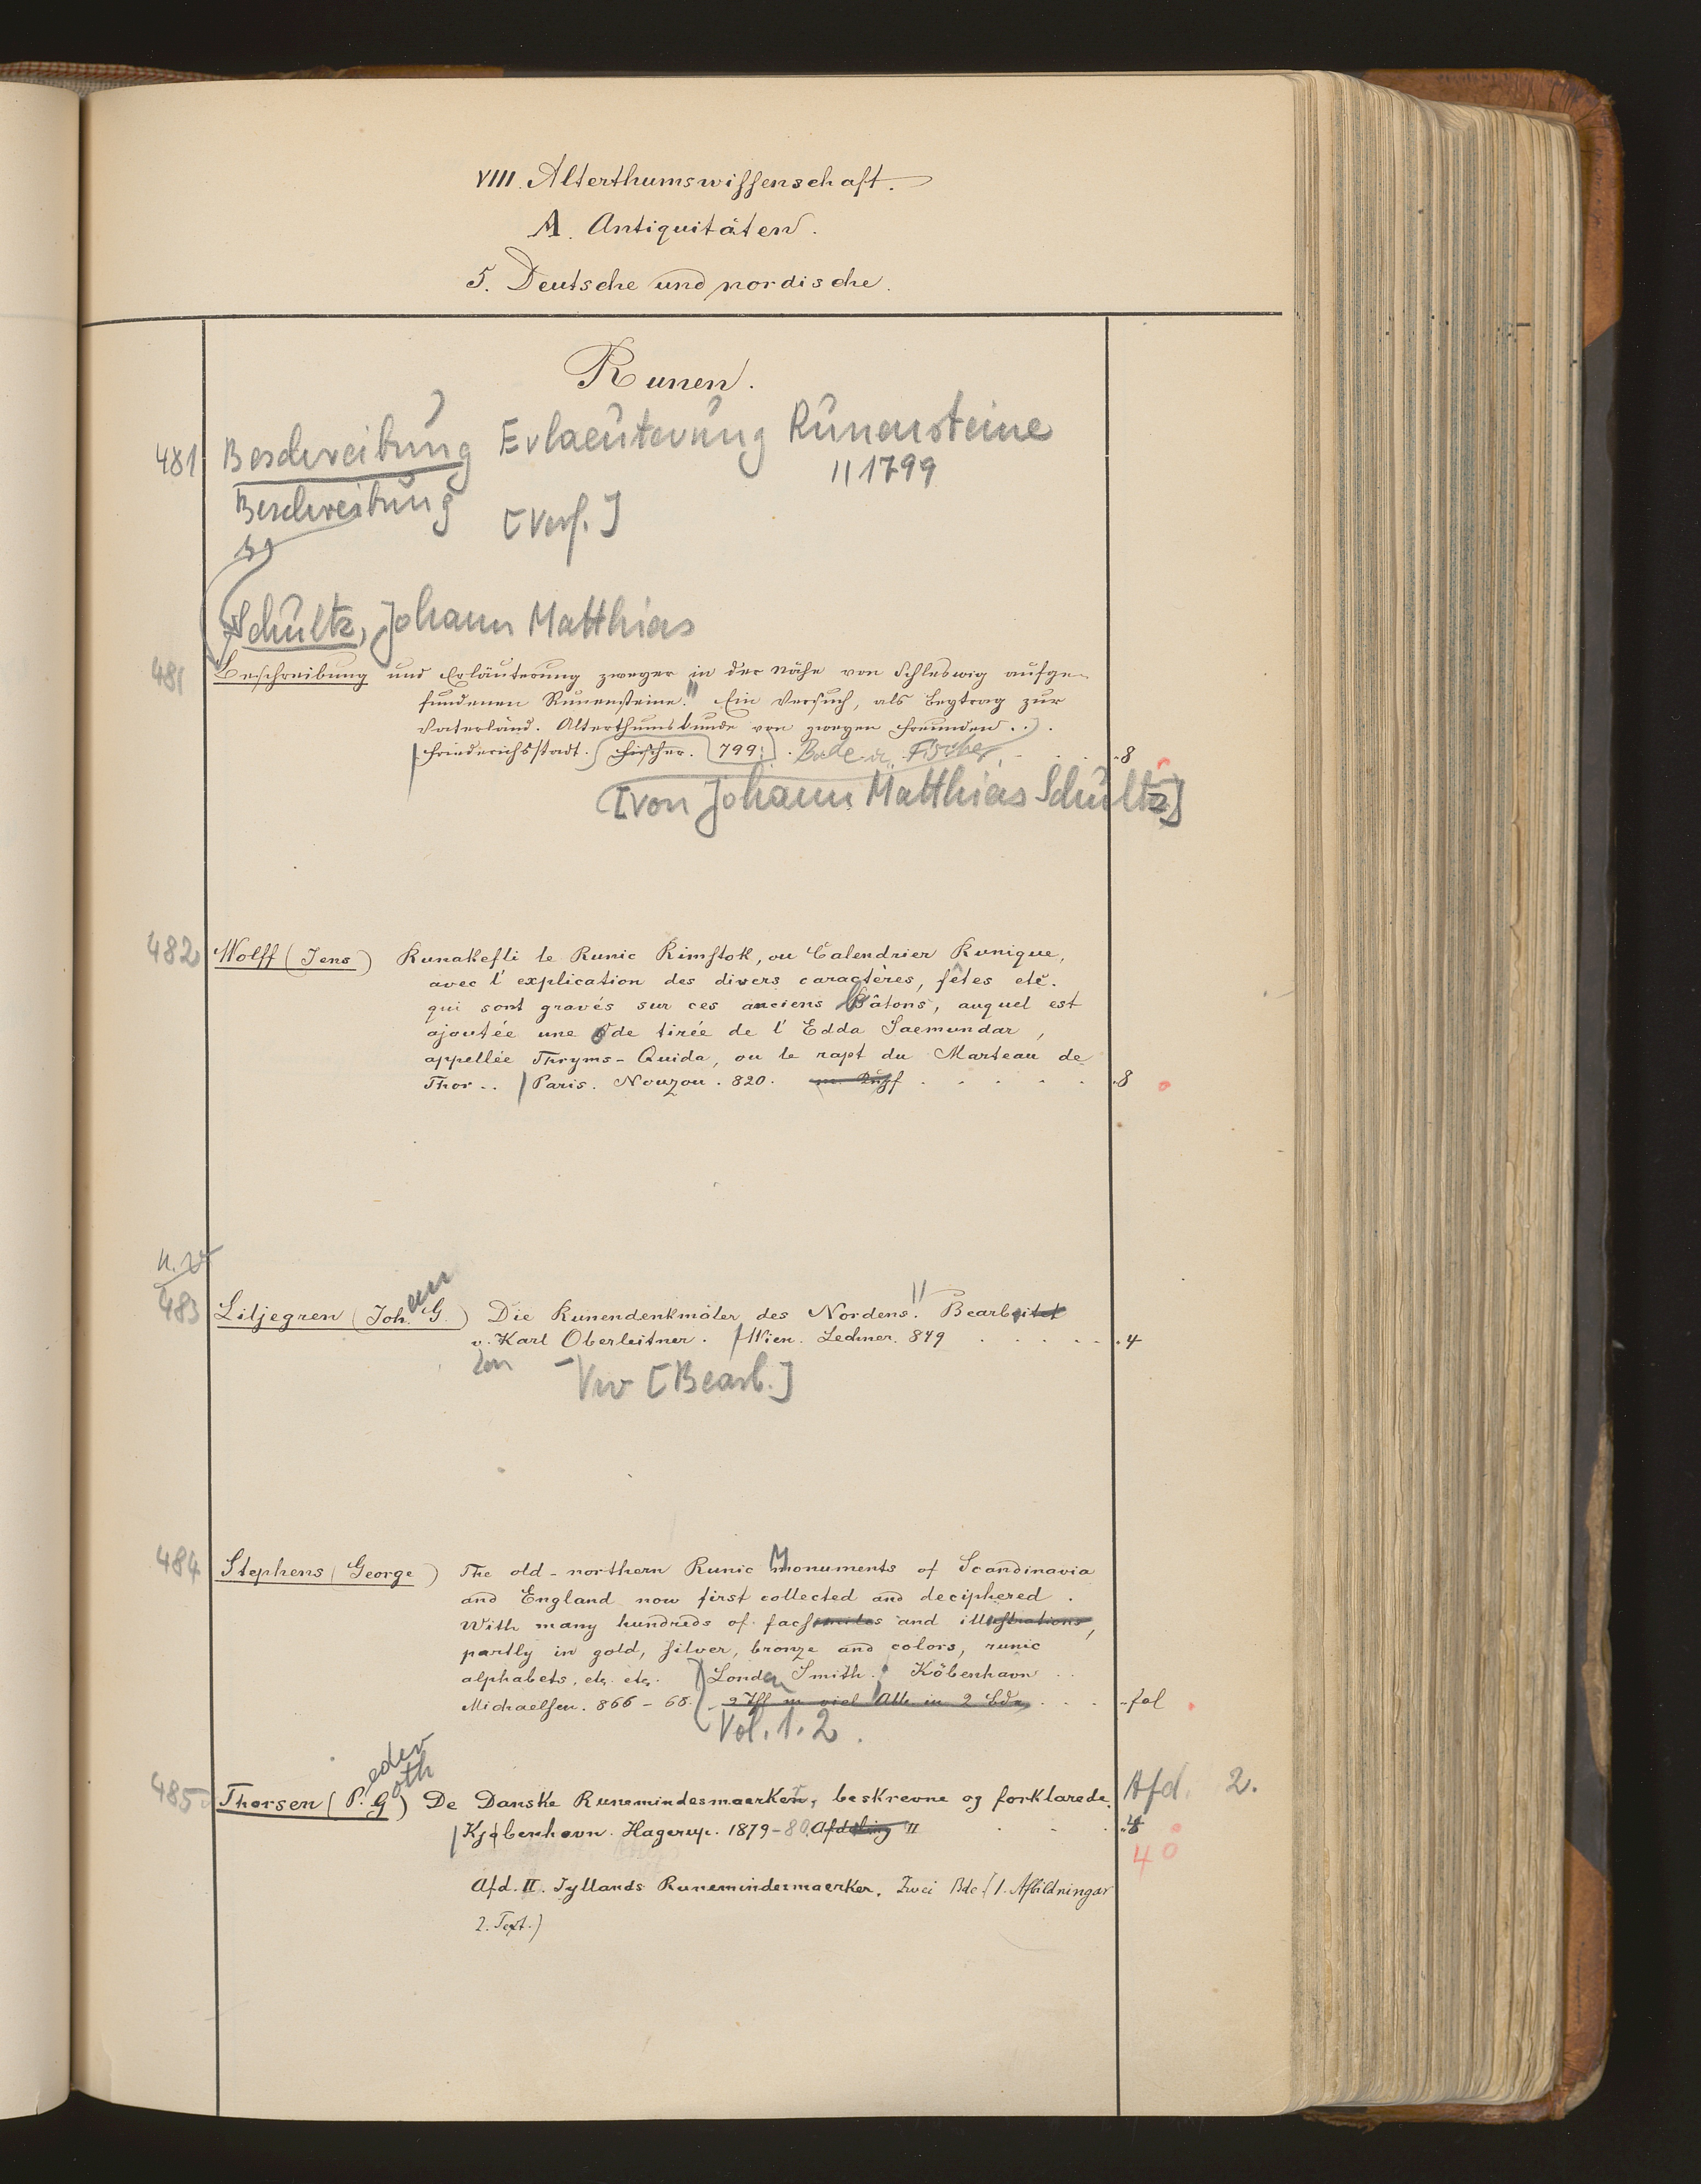 VIII. Alterthumswissenschaft.
A. Antiquitäten.
5. Deutsche und nordische.
Runen.
481 Beschreibung Erlaeuterung Runensteine
// 1799
Beschreibung [Verf.]
Schultz, Johann Matthias
481 Beschreibung und Erläuterung zweyer in der Nähe von Schleswig aufge-
fundenen Runensteine. Ein Versuch, als Beytrag zur
Vaterländ. Alterthumskunde von zweyen Freunden...
Friederichsstadt. Fischer. 799. Bade u. Fischer. 8
[von Johann Matthias Schultz]
482 Wolff (Jens) Runakefli le Runic Rimstok, ou Calendrier Runique,
avec l'explication des divers caractères, fêtes etc.
qui sont gravés sur ces anciens Bâtons, auquel est
ajoutée une Ode tirée de l'Edda Saemundar,
appellée Thryms-Quida, ou le rapt du Marteau de
Thor.. Paris. Nouzou. 820. 8
483 Liljegren (Joh. G.) Die Runendenkmäler des Nordens. // Bearbeitet
v. Karl Oberleitner. Wien. Lechner. 849 4
von – Vw [Bearb.]
484 Stephens (George) The old-northern Runic Monuments of Scandinavia
and England now first collected and deciphered.
With many hundreds of facsimiles and illustrations,
partly in gold, silver, bronze and colors, runic
alphabets, etc. etc. London Smith. Köbenhavn
Michaelsen. 866-68. in 2 Bde fol
Vol. 1. 2.
eder oth
485 Thorsen (P. G) De Danske Runemindesmaerker, beskrevne og forklarede. Afd. 2.
Kjøbenhavn. Hagerup. 1879-80. Afdeling II 4
4°
Afd. II. Jyllands Runemindesmaerker. Zwei Bde (1. Afbildningar
2. Text.)